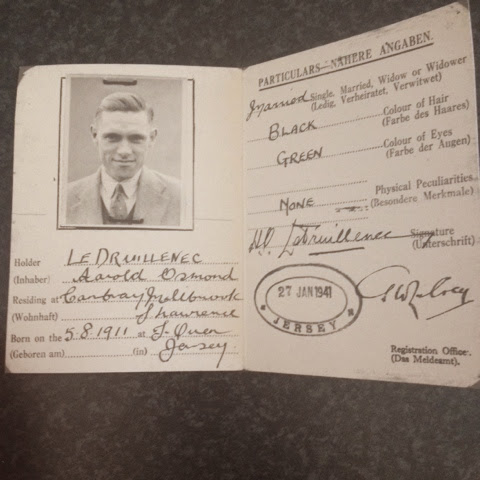 Holder LEDRUILLENEC
(Inhaber) Harold Osmond
Residing at Millbrook
(Wohnhaft) St Lawrence
Born on the 5.8.1911 at St. Ouen
(Geboren am) (in) Jersey.
PARTICULARS—NÄHERE ANGABEN.
Married Single, Married, Widow or Widower
(Ledig, Verheiratet, Verwitwet)
BLACK Colour of Hair
(Farbe des Haares)
GREEN Colour of Eyes
(Farbe der Augen)
NONE Physical Peculiarities
(Besondere Merkmale)
H.O. LeDruillenec Signature
(Unterschrift)
27 JAN 1941
* JERSEY *
Registration Officer.
(Das Meldeamt).